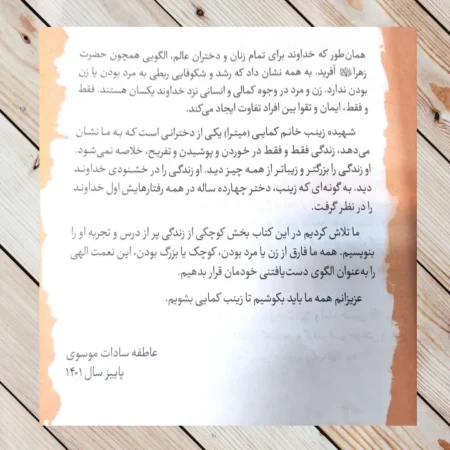 همان‌طور که خداوند برای تمام زنان و دختران عالم، الگویی همچون حضرت
زهرا آفرید. به همه نشان داد که رشد و شکوفایی ربطی به مرد بودن یا زن
بودن ندارد. زن و مرد در وجوه کمالی و انسانی نزد خداوند یکسان هستند. فقط
و فقط، ایمان و تقوا بین افراد تفاوت ایجاد می‌کند.
شهیده زینب خانم کمایی (میترا) یکی از دخترانی است که به ما نشان
می‌دهد، زندگی فقط و فقط در خوردن و پوشیدن و تفریح، خلاصه نمی‌شود.
او زندگی را بزرگتر و زیباتر از همه چیز دید. او زندگی را در خشنودی خداوند
دید. به گونه‌ای که زینب، دختر چهارده ساله در همه رفتارهایش اول خداوند
را در نظر گرفت.
ما تلاش کردیم در این کتاب بخش کوچکی از زندگی پر از درس و تجربه او را
بنویسیم. همه ما فارق از زن یا مرد بودن، کوچک یا بزرگ بودن، این نعمت الهی
را به‌عنوان الگوی دست‌یافتنی خودمان قرار بدهیم.
عزیزانم همه ما باید بکوشیم تا زینب کمایی بشویم.
عاطفه سادات موسوی
پاییز سال ۱۴۰۱